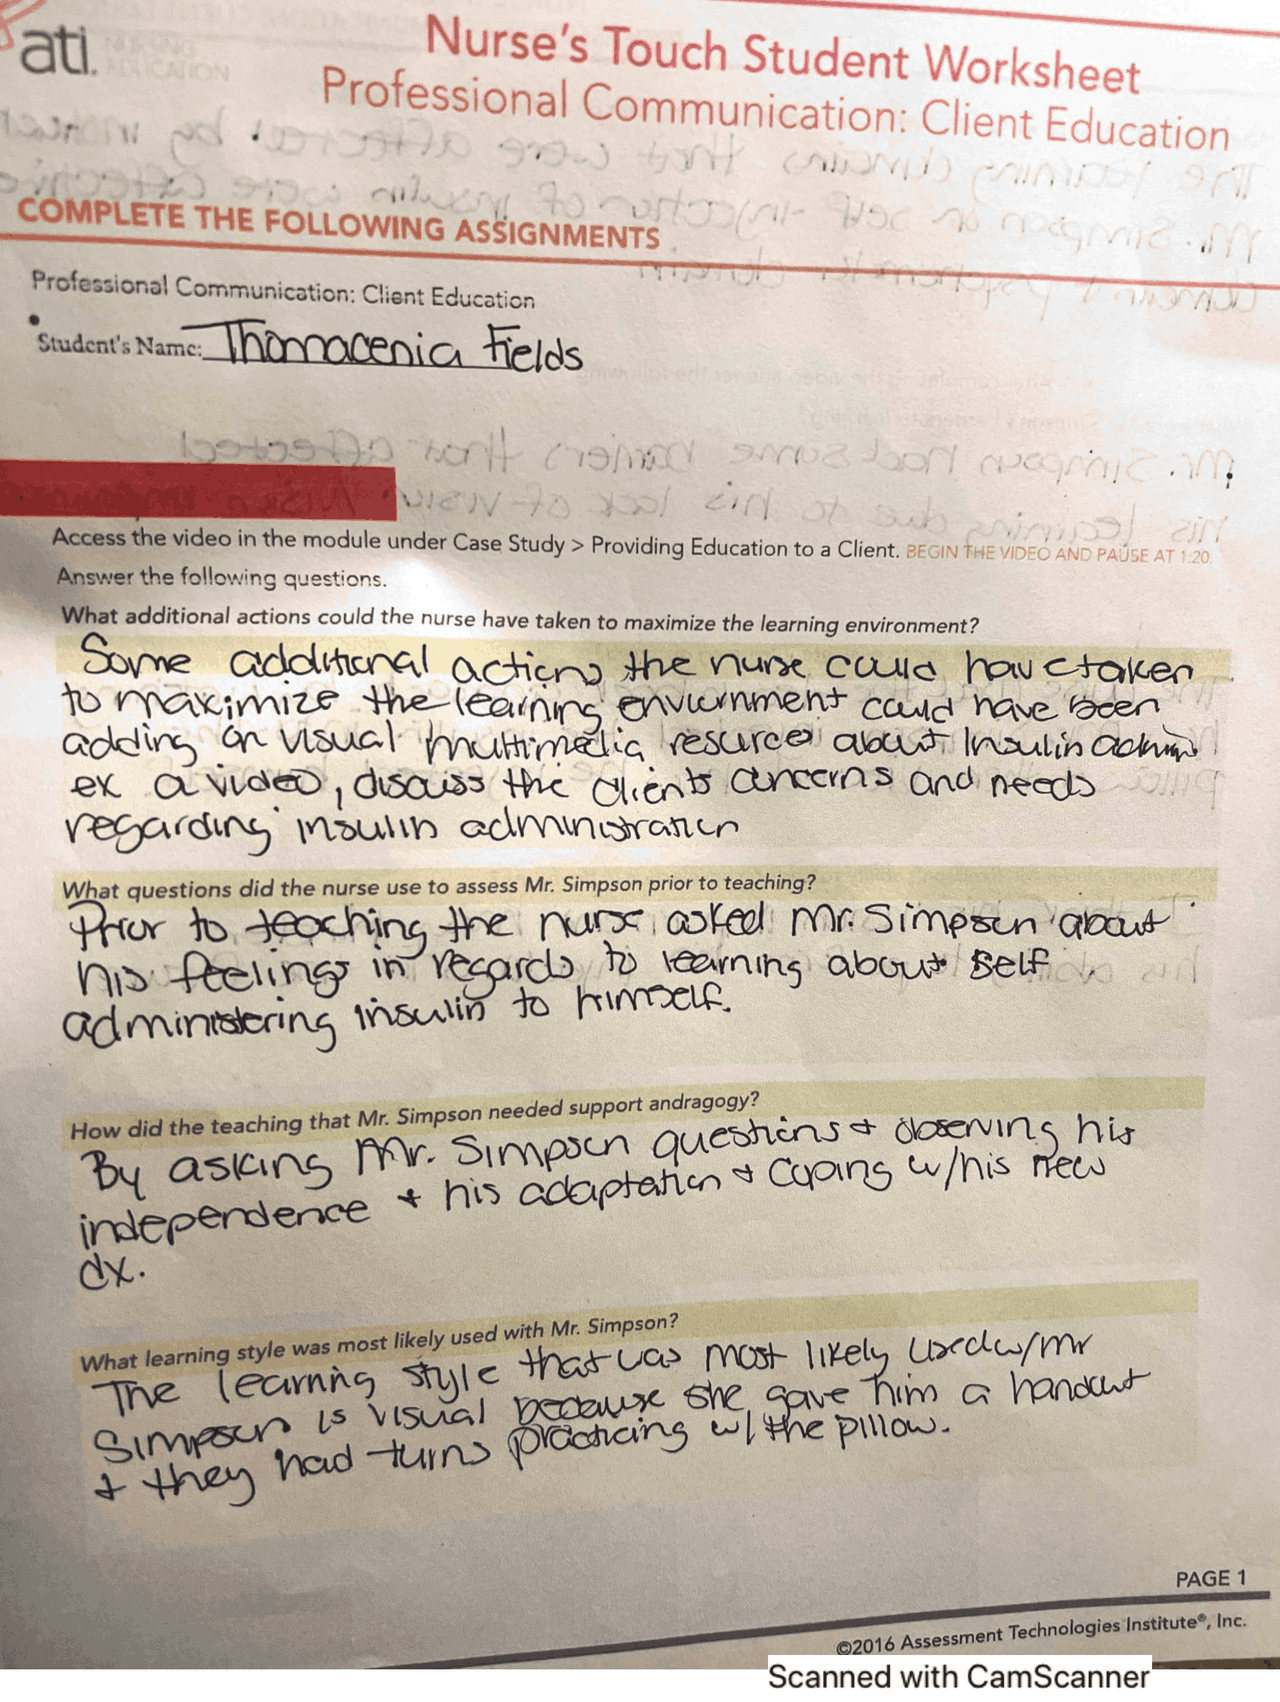 ati.
NURSING
EDUCATION
Nurse's Touch Student Worksheet
Professional Communication: Client Education
COMPLETE THE FOLLOWING ASSIGNMENTS
Professional Communication: Client Education
Student's Name: Thomacenia Fields
Access the video in the module under Case Study > Providing Education to a Client. BEGIN THE VIDEO AND PAUSE AT 1:20.
Answer the following questions.
What additional actions could the nurse have taken to maximize the learning environment?
Some additional actions the nurse could have taken
to maximize the learning enviornment could have been
adding on visual multimedia resources about Insulin admin
ex a video, discuss the clients concerns and needs
regarding insulin administration
What questions did the nurse use to assess Mr. Simpson prior to teaching?
Prior to teaching the nurse asked Mr. Simpson about
his feelings in regards to learning about self
administering insulin to himself.
How did the teaching that Mr. Simpson needed support andragogy?
By asking Mr. Simpson questions + observing his
independence + his adaptation + coping w/his new
dx.
What learning style was most likely used with Mr. Simpson?
The learning style that was most likely used w/mr
Simpson is visual because she gave him a handout
+ they had turns practicing w/ the pillow.
PAGE 1
©2016 Assessment Technologies Institute®, Inc.
Scanned with CamScanner